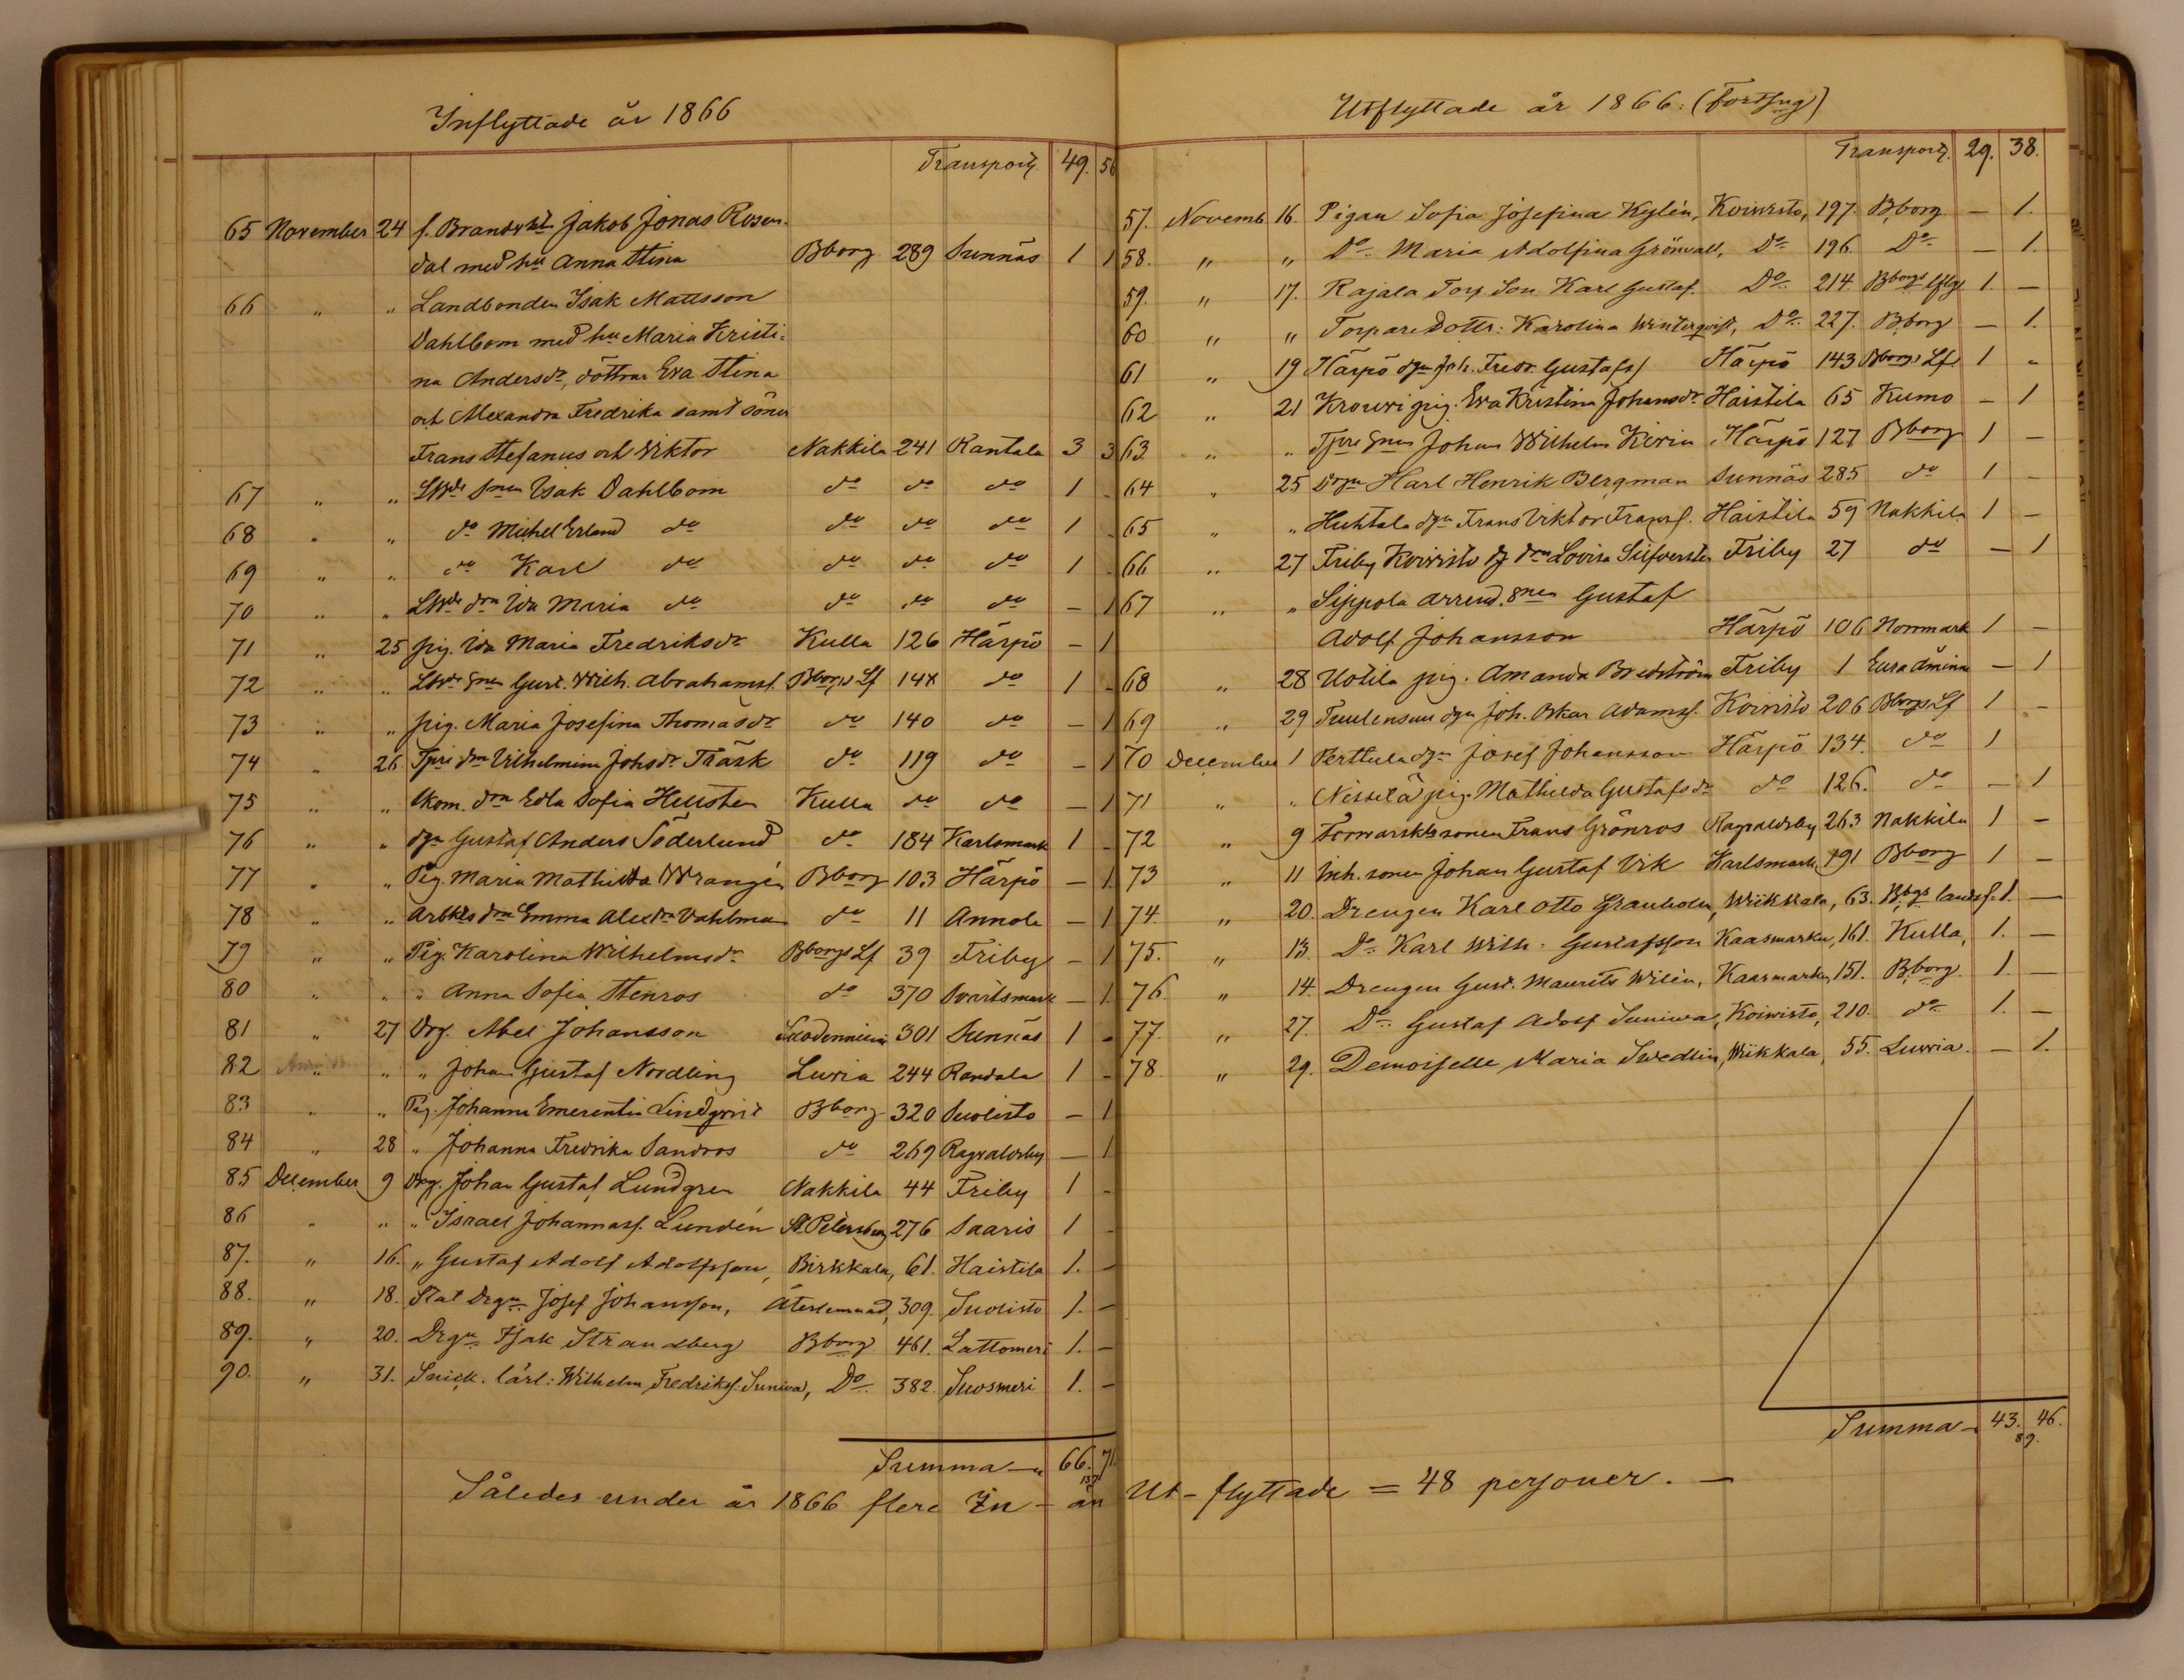 Inflyttade år 1866
Transport 49. 56
65 November 24 f. Brandvkt Jakob Jonas Rosen-
dal med hu Anna Stina Bborg 289 Sunnäs 1 1
66 " " Landbonden Isak Mattsson
Dahlbom med hu Maria Kristi-
na Andersdr, döttrar Eva Stina
och Alexandra Fredrika samt söner
Frans Stefanus och Viktor Nakkila 241 Rantala 3 3
67 " " Isak Dahlbom do do do 1 -
68 " " do Michel Erland do do do do 1 -
69 " " do Karl do do do do 1 -
70 " " Ida Maria do do do do - 1
71 " 25 pig. Ida Maria Fredriksdr Kulla 126 Härpö - 1
72 " " Gust. Wilh. Abrahamsf. Bborgs Lf 148 do 1 -
73 " " pig. Maria Josefina Thomasdr do 140 do - 1
74 " 26 Tpre drn Vilhelmina Johsdr Träsk do 119 do - 1
75 " " Skom. drn Edla Sofia Hellsten Kulla do do - 1
76 " " dgn Gustaf Anders Söderlund do 184 Karlsmark 1 -
77 " " Pig. Maria Mathilda Wrangén Bborg 103 Härpö - 1
78 " " Arbkls drn Emma Alexdra Vahlman do 11 Annola - 1
79 " " Pig. Karolina Wilhelmsdr Bborgs Lf 39 Friby - 1
80 " " " Anna Sofia Stenros do 370 Svartsmark - 1.
81 " 27 Drg. Abel Johansson 301 Sunnäs 1 -
82 " " " Johan Gustaf Nordling Luvia 244 Randala 1 -
83 " " Pig. Johanna Emerentia Lindqvist Bborg 320 Suolisto - 1
84 " 28 " Johanna Fredrika Sandros do 269 Ragvaldsby - 1
85 December 9 Drg. Johan Gustaf Lundgren Nakkila 44 Friby 1 -
86 " " " Israel Johannasf. Lundén St. Petersburg 276 Saaris 1 -
87. " 16. " Gustaf Adolf Adolfsson, Birkkala, 61. Haistila 1. -
88. " 18. Stat Drgn Josef Johansson, Återlemnad, 309. Suolisto 1. -
89. " 20. Drgn Isak Strandberg Bborg 461. Lattomeri 1. -
90. " 31. Snick. lärl: Wilhelm Fredriksf. Suniva, Do 382. Suosmeri 1. -
Summa 66. 71.
137
Således under år 1866 flere In - än
Utflyttade år 1866: (Fortsng)
Transport. 29. 38.
57. Novemb 16. Pigan Sofia Josefina Kylén, Koivisto, 197. Bborg - 1.
58. " " Do Maria Adolfina Grönvall, Do 196. Do - 1.
59. " 17. Rajala Torp. Son Karl Gustaf. Do 214. Bborgs lfg. 1. -
60 " " Torpare Dottr: Karolina Winterqvist, Do 227. Bborg - 1.
61 " 19 Härpö dgn Joh. Fredr. Gustafsf Härpö 143 Bborgs Lf. 1 -
62 " 21 Krouvi pig. Eva Kristina Johansdr Haistila 65 Kumo - 1
63 " " Tpre snen Johan Wilhelm Härpö 127 Bborg 1 -
64 " 25 Drgn Karl Henrik Bergman Sunnäs 285 do 1 -
65 " " Huhtala dgn Frans Viktor Fransf. Haistila 59 Nakkila 1 -
66 " 27 Friby Koivisto drn Lovisa Silfversten Friby 27 do - 1
67 " " Sippola arrend. snen Gustaf
Adolf Johansson Härpö 106 Norrmark 1 -
68 " 28 Uotila pig. Amanda Bredström Friby 1 Euraåminne - 1
69 " 29 Tuulensuu dgn Joh. Oskar Adamsf. Koivisto 206 Bborgs Lf 1 -
70 December 1 Perttula dgn Josef Johansson Härpö 134. do 1
71 " " Nissilä pig. Mathilda Gustafsdr do 126. do - 1
72 " 9 sonen Frans Grönros Ragvaldsby 263 Nakkila 1 -
73 " 11 Inh. sonen Johan Gustaf Vik Karlsmark 191 Bborg 1 -
74. " 20. Drengen Karl Otto Granholm, Wiikkala, 63. Bbgs landsf. 1. -
75. " 13. Do Karl Wilh: Gustafsson Kaasmarku, 161. Kulla, 1. -
76. " 14. Drengen Gust. Maurits Wilén, Kaasmarku, 151. Bborg. 1. -
77. " 27. Do Gustaf Adolf Suniva, Koivisto, 210. do 1. -
78. " 29. Demoiselle Maria Swedlin, Wiikkala, 55. Luvia. - 1.
Summa - 43. 46.
89.
Ut-flyttade = 48 personer. -